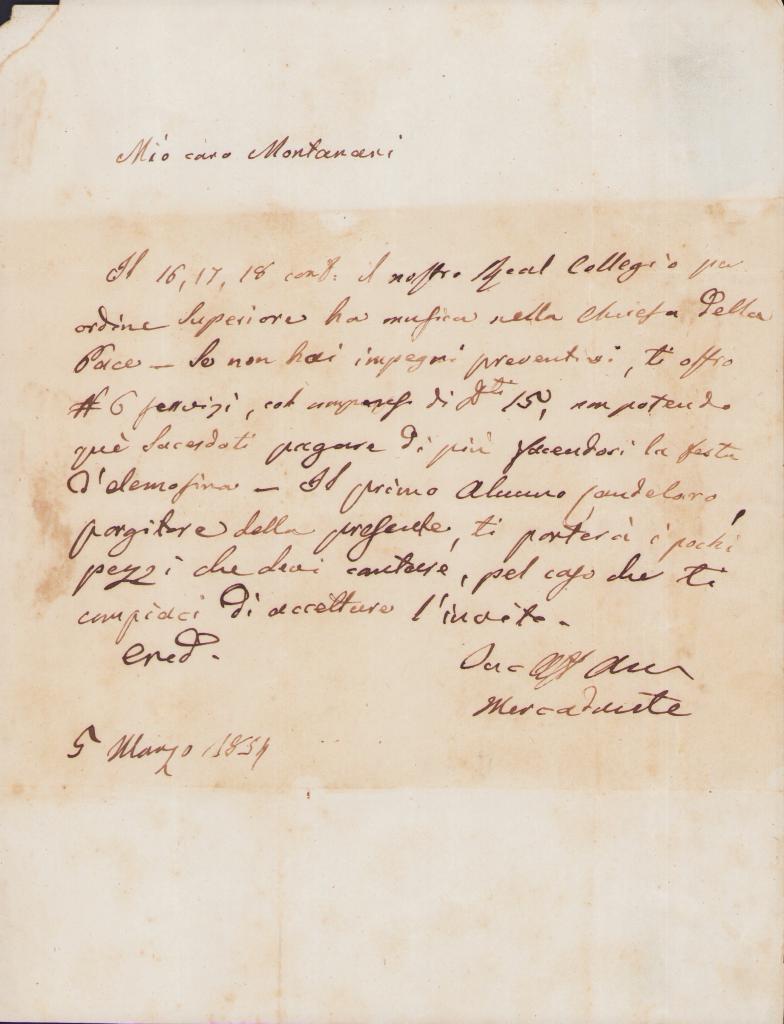 Mio caro Montanari
Il 16, 17, 18 corr: il nostro Real Collegio per
ordine Superiore ha musica nella Chiesa della
Pace — Se non hai impegni preventivi, ti offro
# 6 servizi, col compenso di Dti 15, non potendo
què Sacerdoti pagare di più facendosi la festa
d'elemosina — Il primo Alunno Candeloro,
porgitore della presente, ti porterà i pochi
pezzi che devi cantare, pel caso che ti
compiaci di accettare l'invito.
Cred.
Mercadante
5 Marzo 1854